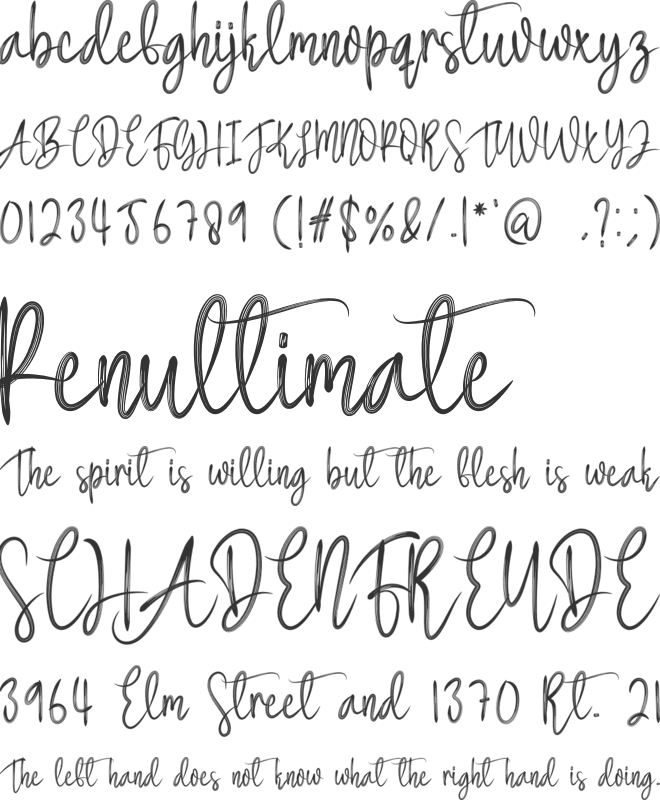 abcdefghijklmnopqrstuvwxyz
ABCDEFGHIJKLMNOPQRSTUVWXYZ
0123456789 (!#$%&/.|*'@ ,?:;)
Penultimate
The spirit is willing but the flesh is weak
SCHADENFREUDE
3964 Elm Street and 1370 Rt. 21
The left hand does not know what the right hand is doing.